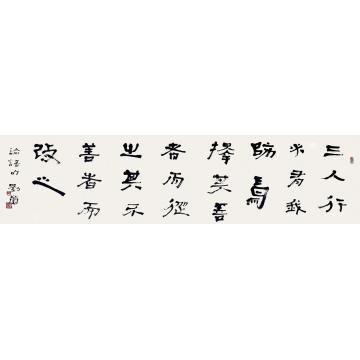 三人行
必有我
師焉
擇其善
者而從
之其不
善者而
改之
論語句
劉